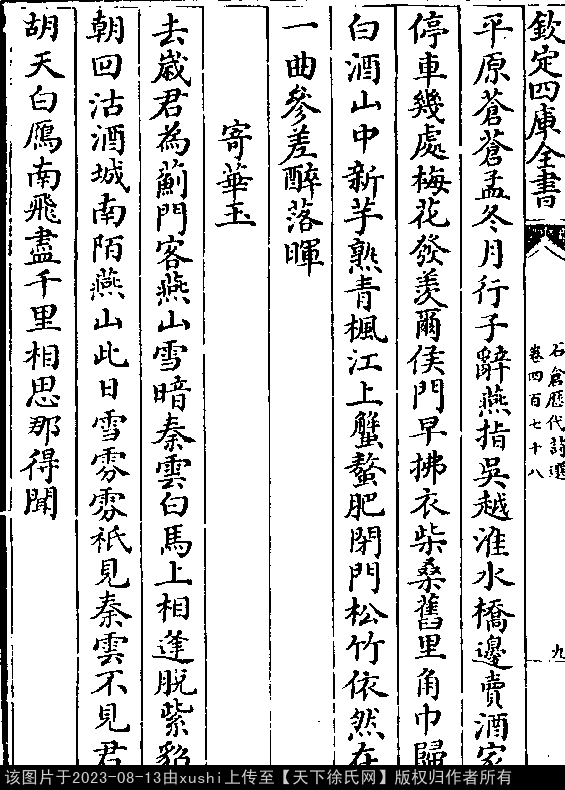 欽定四庫全書
石倉歷代詩選
卷四百七十八
九
平原蒼蒼孟冬月行子辭燕指吳越淮水橋邊賣酒家
停車幾處梅花發羨爾侯門早拂衣柴桑舊里角巾歸
白酒山中新芋熟青楓江上蟹螯肥閉門松竹依然在
一曲參差醉落暉
寄華玉
去歲君為薊門客燕山雪暗秦雲白馬上相逢脫紫貂
朝回沽酒城南陌燕山此日雪雰雰祇見秦雲不見君
胡天白鴈南飛盡千里相思那得聞
该图片于2023-08-13由xushi上传至【天下徐氏网】版权归作者所有